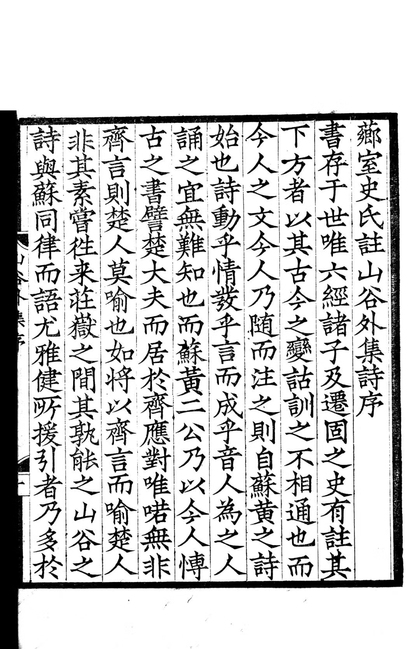 薌室史氏註山谷外集詩序
書存于世唯六經諸子及遷固之史有註其
下方者以其古今之變詁訓之不相通也而
今人之文今人乃随而注之則自蘇黃之詩
始也詩動乎情發乎言而成乎音人為之人
誦之宜無難知也而蘇黃二公乃以今人愽
古之書譬楚大夫而居於齊應對唯喏無非
齊言則楚人莫喻也如將以齊言而喻楚人
非其素嘗徃来莊嶽之閒其孰能之山谷之
詩與蘇同律而語尤雅健所援引者乃多於
山谷外集序
一